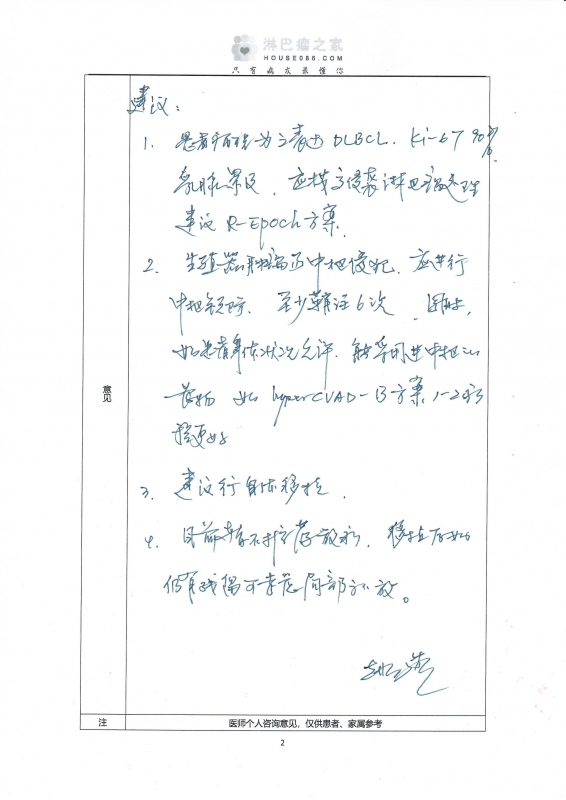 淋巴瘤之家
HOUSE086.COM
只有病友最懂你
意见
建议：
1. 患者 为主 DLBCL. Ki-67 90%
累及，应按高侵袲淋巴瘤处理
建议 R-Epoch 方案.
2. 生殖器肿瘤 中枢侵犯. 应进行
中枢预防. 至少鞘注6次. 同时,
如患者身体状况允许. 能采用进中枢的
药物 如 hyperCVAD-B方案, 1-2
更好
3. 建议行自体移植.
4. 目前暂不推荐放疗. 移植后如
仍有残留可考虑局部 放。
注
医师个人咨询意见，仅供患者、家属参考
2